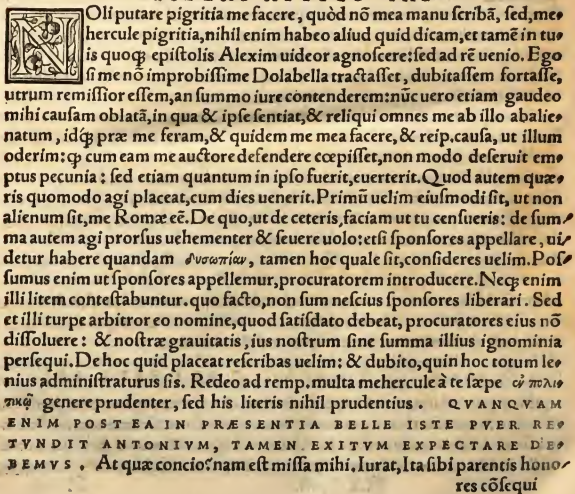 NOli putare pigritia me facere, quòd nõ mea manu ſcribã, ſed, me⸗
hercule pigritia, nihil enim habeo aliud quid dicam, et tamẽ in tu⸗
is quoq; epiſtolis Alexim uideor agnoſcere: ſed ad rẽ uenio. Ego
ſi me nõ improbiſſime Dolabella tractaſſet, dubitaſſem fortaſſe,
utrum remiſſior eſſem, an ſummo iure contenderem: nũc uero etiam gaudeo
mihi cauſam oblatã, in qua & ipſe ſentiat, & reliqui omnes me ab illo abalie⸗
natum, idq; præ me feram, & quidem me mea facere, & reip. cauſa, ut illum
oderim: ꝙ cum eam me auctore defendere cœpiſſet, non modo deſeruit em⸗
ptus pecunia: ſed etiam quantum in ipſo fuerit, euerterit. Quod autem quæ⸗
ris quomodo agi placeat, cum dies uenerit. Primũ uelim eiuſmodi ſit, ut non
alienum ſit, me Romæ eẽ. De quo, ut de ceteris, faciam ut tu cenſueris: de ſum⸗
ma autem agi prorſus uehementer & ſeuere uolo: etſi ſponſores appellare, ui⸗
detur habere quandam δυσωπίαν, tamen hoc quale ſit, conſideres uelim. Poſ⸗
ſumus enim ut ſponſores appellemur, procuratorem introducere. Neq; enim
illi litem conteſtabuntur. quo facto, non ſum neſcius ſponſores liberari. Sed
et illi turpe arbitror eo nomine, quod ſatiſdato debeat, procuratores eius nõ
diſſoluere: & noſtræ grauitatis, ius noſtrum ſine ſumma illius ignominia
perſequi. De hoc quid placeat reſcribas uelim: & dubito, quin hoc totum le⸗
nius adminiſtraturus ſis. Redeo ad remp. multa mehercule à te ſæpe ἐν πολι⸗
τικῷ genere prudenter, ſed his literis nihil prudentius. QVANQVAM
ENIM POSTEA IN PRÆSENTIA BELLE ISTE PVER RE⸗
TVNDIT ANTONIVM, TAMEN EXITVM EXPECTARE DE⸗
BEMVS. At quæ concio? nam eſt miſſa mihi. Iurat, Ita ſibi parentis hono⸗
res cõſequi